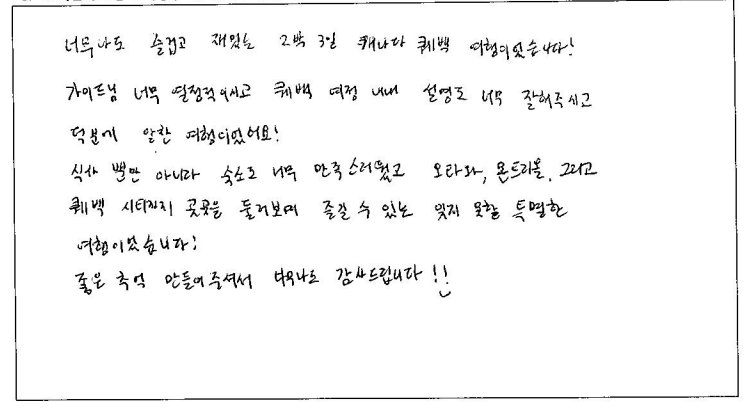 너무나도 즐겁고 재밌는 2박 3일 캐나다 퀘백 여행이었습니다!
가이드님 너무 열정적이시고 퀘백 여정 내내 설명도 너무 잘해주시고
덕분에 알찬 여행이었어요!
식사 뿐만 아니라 숙소도 너무 만족스러웠고 오타와, 몬트리올, 그리고
퀘백 시티까지 곳곳을 둘러보며 즐길 수 있는 잊지 못할 특별한
여행이었습니다!
좋은 추억 만들어주셔서 너무나도 감사드립니다!!